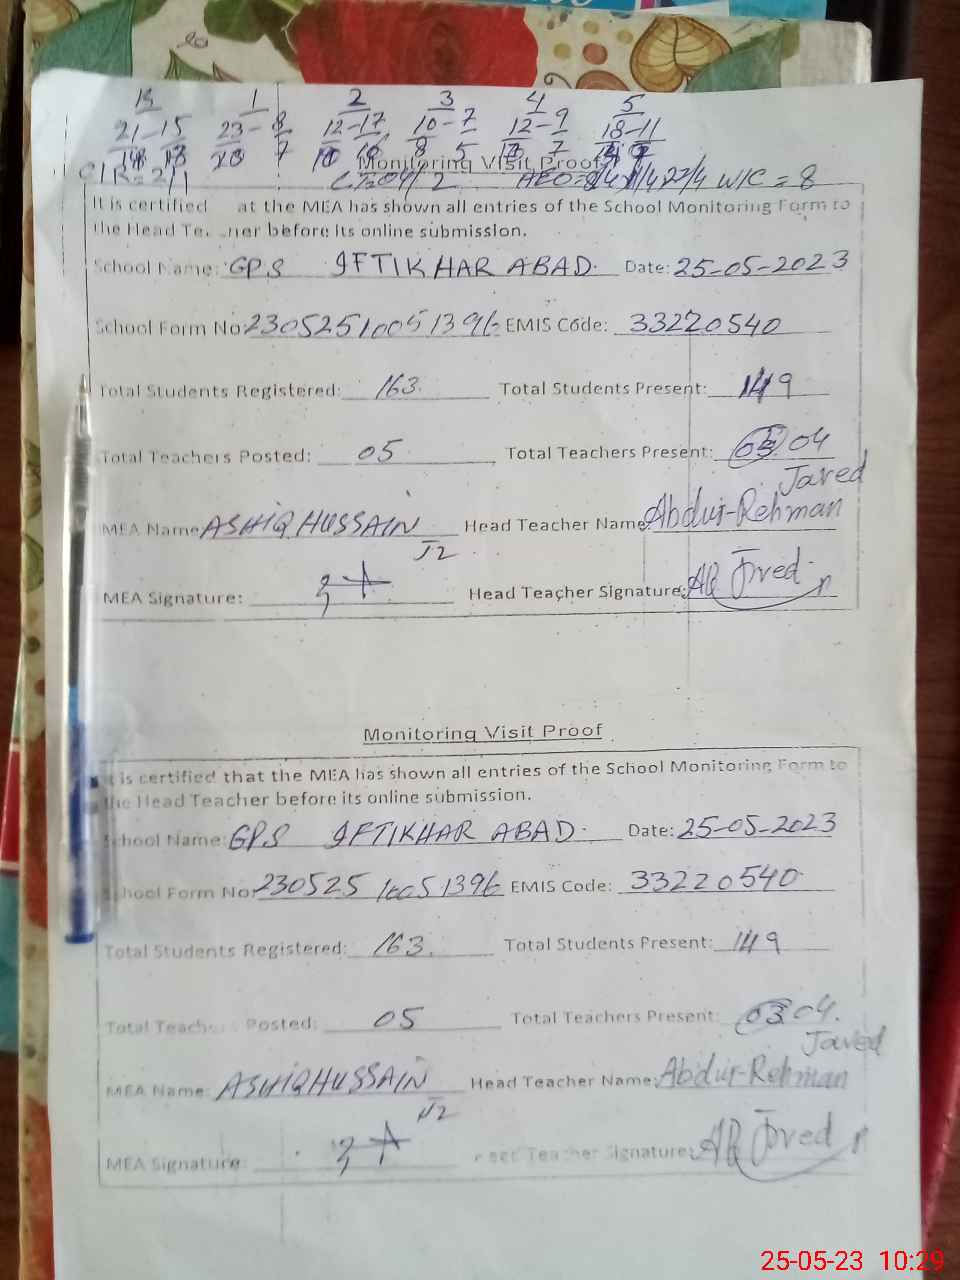 1 2 3 4 5
21-15 23-8 12-17 10-7 12-9 18-11
7 8 5 7
C/R=2/1 W/C = 8
Monitoring Visit Proof
It is certified at the MEA has shown all entries of the School Monitoring Form to
the Head Te her before its online submission.
School Name: GPS IFTIKHAR ABAD. Date: 25-05-2023
School Form No: 23052510051396 EMIS Code: 33220540
Total Students Registered: 163. Total Students Present: 149
Total Teachers Posted: 05 Total Teachers Present: 04
Javed
MEA Name ASHIQ HUSSAIN Head Teacher Name Abdur-Rehman
J2
MEA Signature: Head Teacher Signature: AR Javed
Monitoring Visit Proof
It is certified that the MEA has shown all entries of the School Monitoring Form to
the Head Teacher before its online submission.
School Name: GPS IFTIKHAR ABAD. Date: 25-05-2023
School Form No: 230525 10051396 EMIS Code: 33220540
Total Students Registered: 163. Total Students Present: 149
Total Teachers Posted: 05 Total Teachers Present: 03 04.
Javed
MEA Name: ASHIQ HUSSAIN Head Teacher Name: Abdur-Rehman
J2
MEA Signature: Teacher Signature: AR Javed
25-05-23 10:29